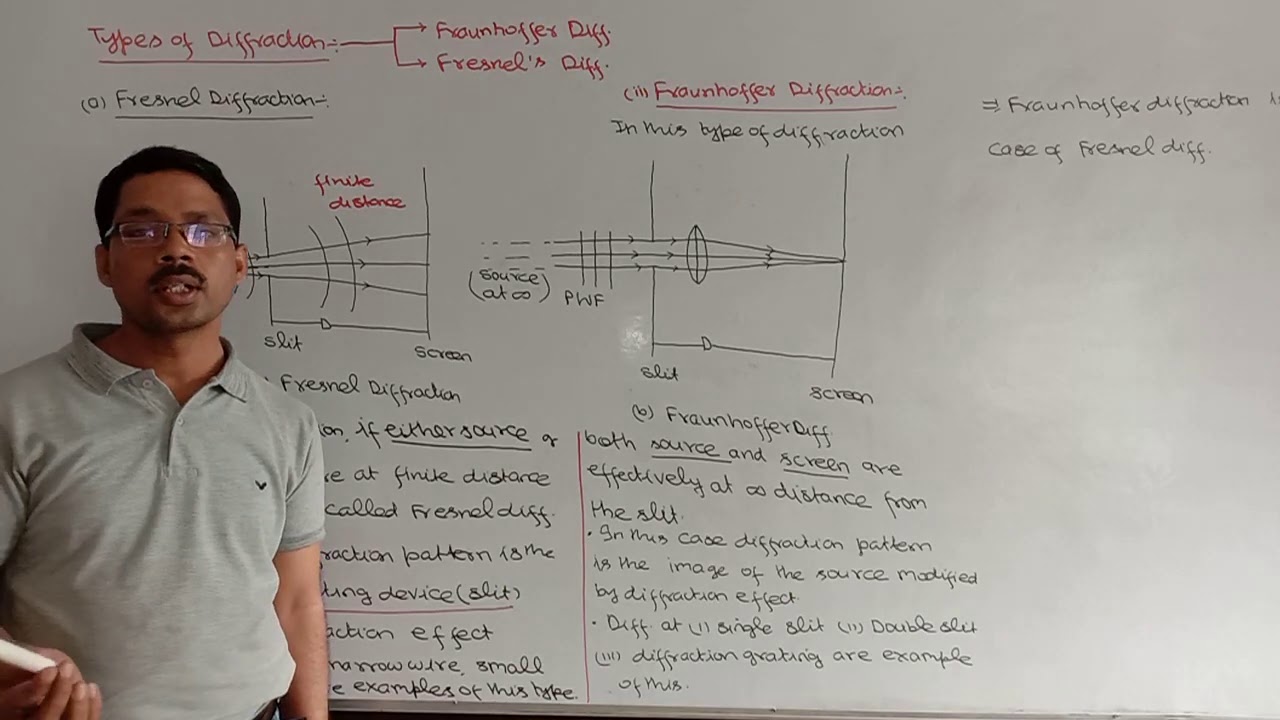 Types of Diffraction:-
Fraunhoffer Diff.
Fresnel's Diff.
(a) Fresnel Diffraction-:
finite
distance
slit
screen
Fresnel Diffraction
if either source or
at finite distance
called Fresnel diff.
pattern is the
device (slit)
effect
narrow wire, small
examples of this type.
(ii) Fraunhoffer Diffraction-:
In this type of diffraction
(source
at ∞)
PWF
slit
screen
(b) Fraunhoffer Diff
both source and screen are
effectively at ∞ distance from
the slit.
• In this case diffraction pattern
is the image of the source modified
by diffraction effect.
• Diff. at (i) single slit (ii) Double slit
(iii) diffraction grating are example
of this.
⇒ Fraunhoffer diffraction
case of Fresnel diff.